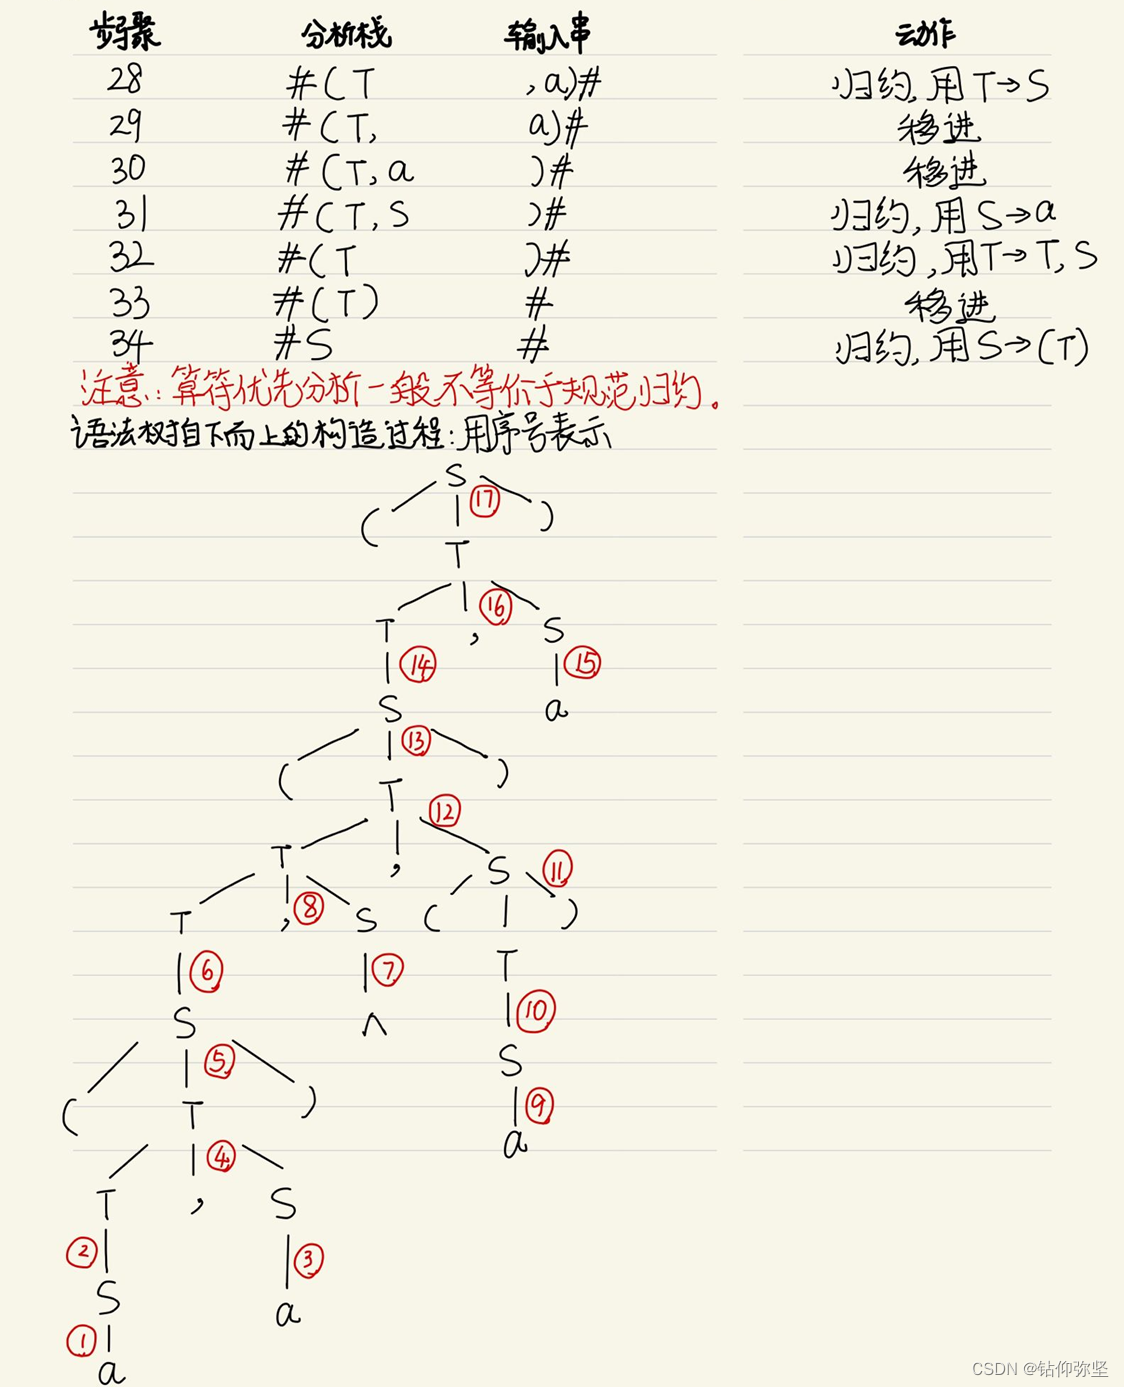 步骤 分析栈 输入串 动作
28 #(T ,a)# 归约,用T→S
29 #(T, a)# 移进
30 #(T,a )# 移进
31 #(T,S )# 归约,用S→a
32 #(T )# 归约,用T→T,S
33 #(T) # 移进
34 #S # 归约,用S→(T)
注意:算符优先分析一般不等价于规范归约。
语法树自下而上的构造过程:用序号表示
S
( ⑰ )
T
⑯
T , S
⑭ ⑮
S a
⑬
( )
T
⑫
T , S ⑪
T , ⑧ S ( )
⑥ ⑦ T
S ∧ ⑩
⑤ S
( T ) ⑨
④ a
T , S
② ③
S a
①
a
CSDN @钻仰弥坚